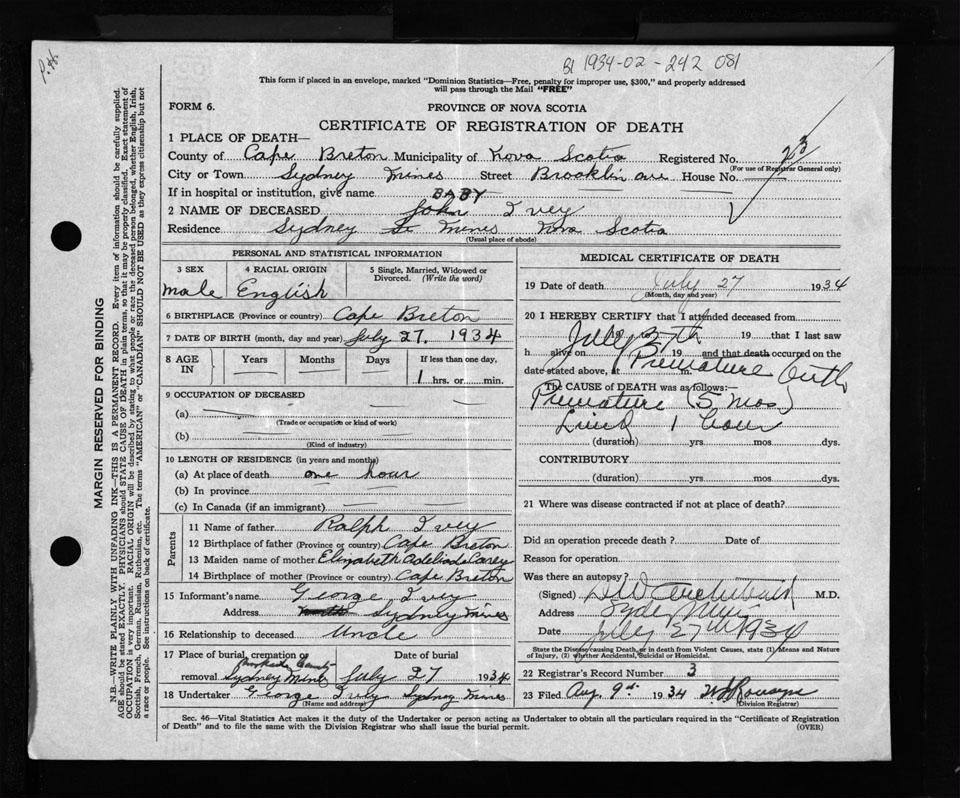 P.H.
B1 1934-02-242 081
This form if placed in an envelope, marked "Dominion Statistics—Free, penalty for improper use, $300," and properly addressed
will pass through the Mail "FREE"
FORM 6.
PROVINCE OF NOVA SCOTIA
CERTIFICATE OF REGISTRATION OF DEATH
1 PLACE OF DEATH—
County of Cape Breton Municipality of Nova Scotia Registered No. 23
(For use of Registrar General only)
City or Town Sydney Mines Street Brooklin ave House No.
If in hospital or institution, give name
BABY
2 NAME OF DECEASED John Ivey
Residence Sydney Mines Nova Scotia
(Usual place of abode)
PERSONAL AND STATISTICAL INFORMATION
3 SEX 4 RACIAL ORIGIN 5 Single, Married, Widowed or Divorced. (Write the word)
male English
6 BIRTHPLACE (Province or country) Cape Breton
7 DATE OF BIRTH (month, day and year) July 27. 1934
8 AGE IN Years Months Days If less than one day,
1 hrs. or min.
9 OCCUPATION OF DECEASED
(a)
(Trade or occupation or kind of work)
(b)
(Kind of industry)
10 LENGTH OF RESIDENCE (in years and months)
(a) At place of death one hour
(b) In province
(c) In Canada (if an immigrant)
Parents
11 Name of father Ralph Ivey
12 Birthplace of father (Province or country) Cape Breton
13 Maiden name of mother Elizabeth Adeliade Carey
14 Birthplace of mother (Province or country) Cape Breton
15 Informant's name George Ivey
Address Sydney Mines
16 Relationship to deceased Uncle
17 Place of burial, cremation or removal Date of burial
Sydney Mines July 27 1934
18 Undertaker George Ivey Sydney Mines
(Name and address)
MEDICAL CERTIFICATE OF DEATH
19 Date of death July 27 1934
(Month, day and year)
20 I HEREBY CERTIFY that I attended deceased from
19 19 that I last saw
h alive on 19 and that death occurred on the
date stated above, at m.
Premature birth
The CAUSE OF DEATH was as follows:—
Premature (5 mos)
Lived 1 hour
(duration) yrs mos dys.
CONTRIBUTORY
(duration) yrs mos dys.
21 Where was disease contracted if not at place of death?
Did an operation precede death? Date of
Reason for operation
Was there an autopsy?
(Signed) Archibald M.D.
Address Syd Mines
Date July 27th 1934
State the Disease causing Death, or in death from Violent Causes, state (1) Means and Nature
of Injury, (2) whether Accidental, Suicidal or Homicidal.
22 Registrar's Record Number 3
23 Filed Aug. 9th 1934
(Division Registrar)
Sec. 46—Vital Statistics Act makes it the duty of the Undertaker or person acting as Undertaker to obtain all the particulars required in the "Certificate of Registration
of Death" and to file the same with the Division Registrar who shall issue the burial permit.
(OVER)
MARGIN RESERVED FOR BINDING
N.B.—WRITE PLAINLY WITH UNFADING INK—THIS IS A PERMANENT RECORD. Every item of information should be carefully supplied.
AGE should be stated EXACTLY. PHYSICIANS should STATE CAUSE OF DEATH in plain terms, so that it may be properly classified. Exact statement of
OCCUPATION is very important. RACIAL ORIGIN will be described by stating to what people or race the deceased person belonged, whether English, Irish,
Scottish, French, German, Russian, Ruthenian, etc. The terms "AMERICAN" or "CANADIAN" SHOULD NOT BE USED as they express citizenship but not
a race or people. See instructions on back of certificate.